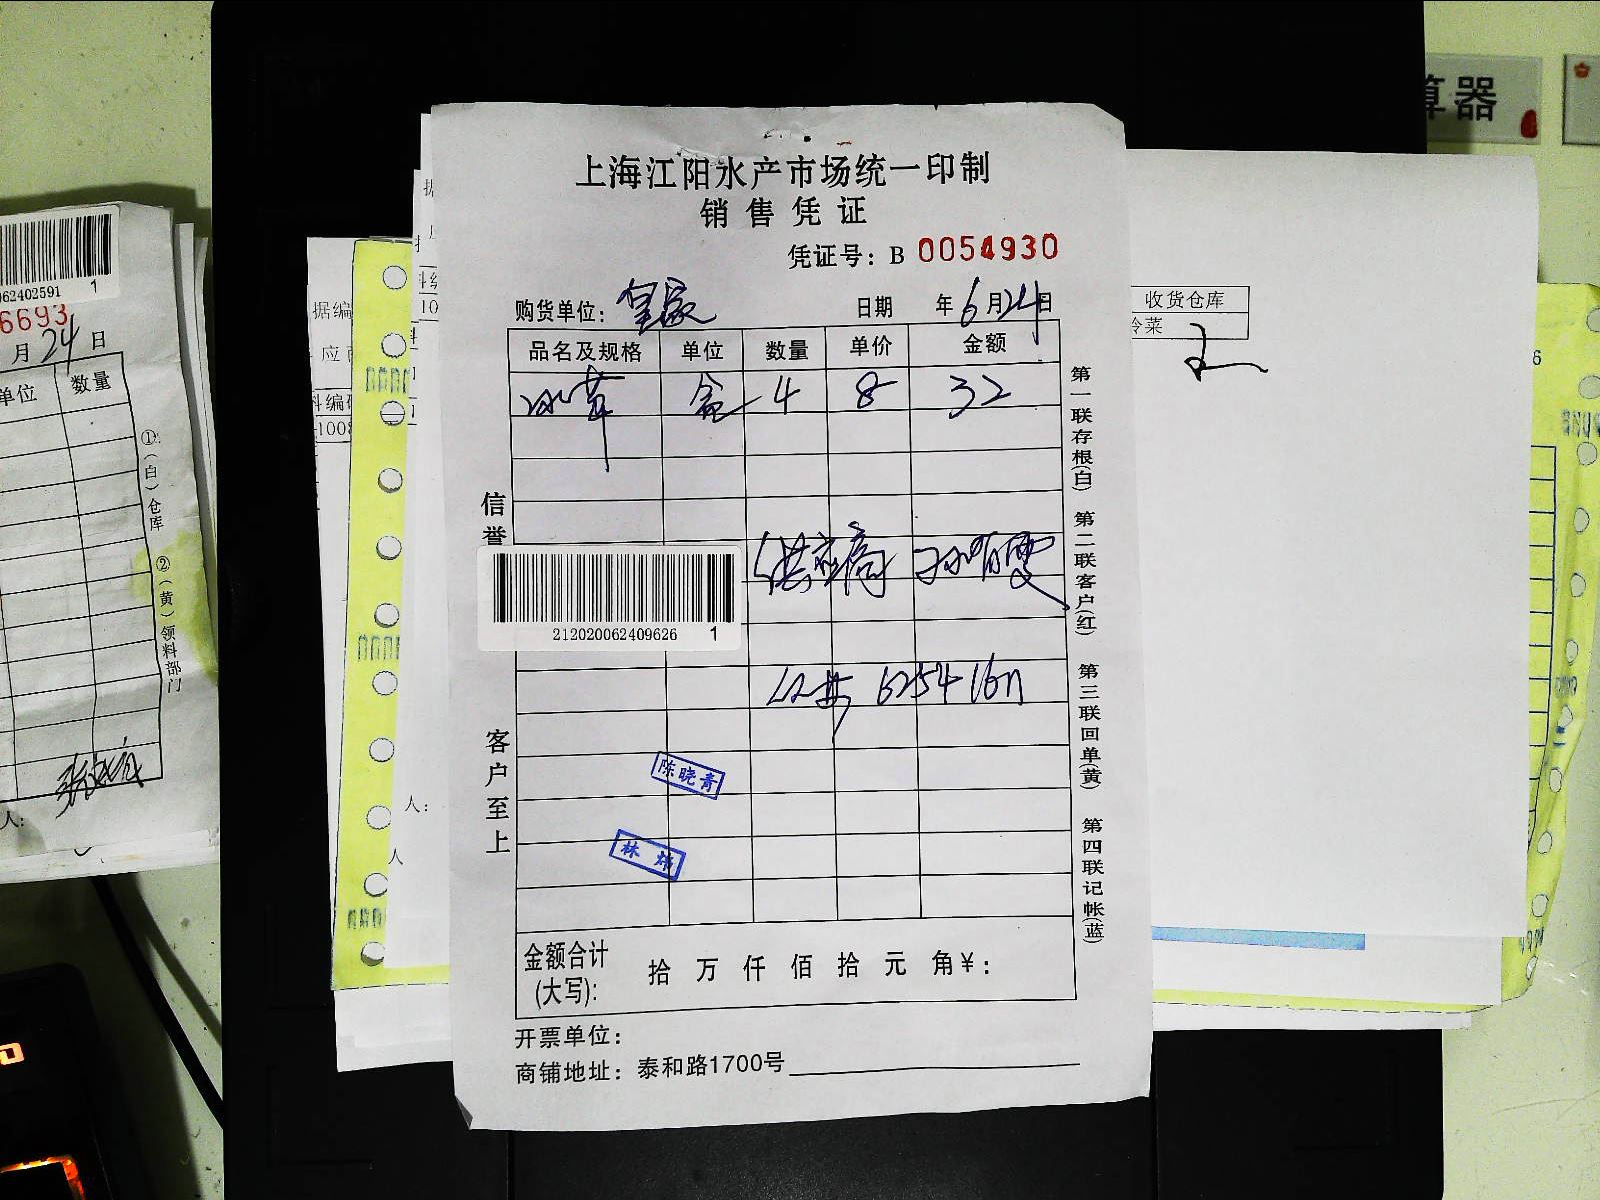 上海江阳水产市场统一印制
销售凭证
凭证号：B 0054930
购货单位：皇家 日期 年6月24日
品名及规格 单位 数量 单价 金额
冰草 盒 4 8 32
供应商
212020062409626 1
陈晓青
林炜
金额合计(大写)： 拾 万 仟 佰 拾 元 角 ¥：
开票单位：
商铺地址：泰和路1700号
信誉
客户至上
第一联存根(白) 第二联客户(红) 第三联回单(黄) 第四联记帐(蓝)
062402591 1
6693
月24日
单位 数量
①(白)仓库 ②(黄)领料部门
人：
据编
应
料编
1008
人：
人
收货仓库
冷菜
算器